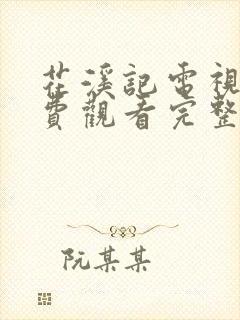 花溪記電視
費觀看完整
阮某某